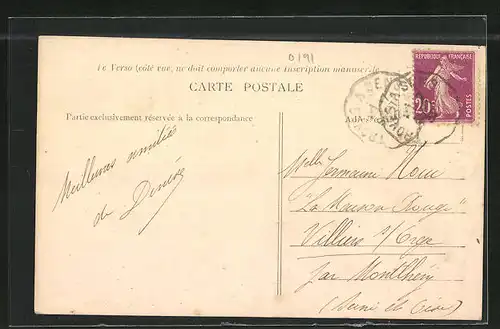 0191
Le Verso (côté vue, ne doit comporter aucune inscription manuscrite
CARTE POSTALE
Partie exclusivement réservée à la correspondance
RÉPUBLIQUE FRANÇAISE
20c
POSTES
Meilleures amitiés
de
Melle Germaine
"La Maison Rouge"
Villiers s/Orge
par Montlhéry
(Seine et Oise)